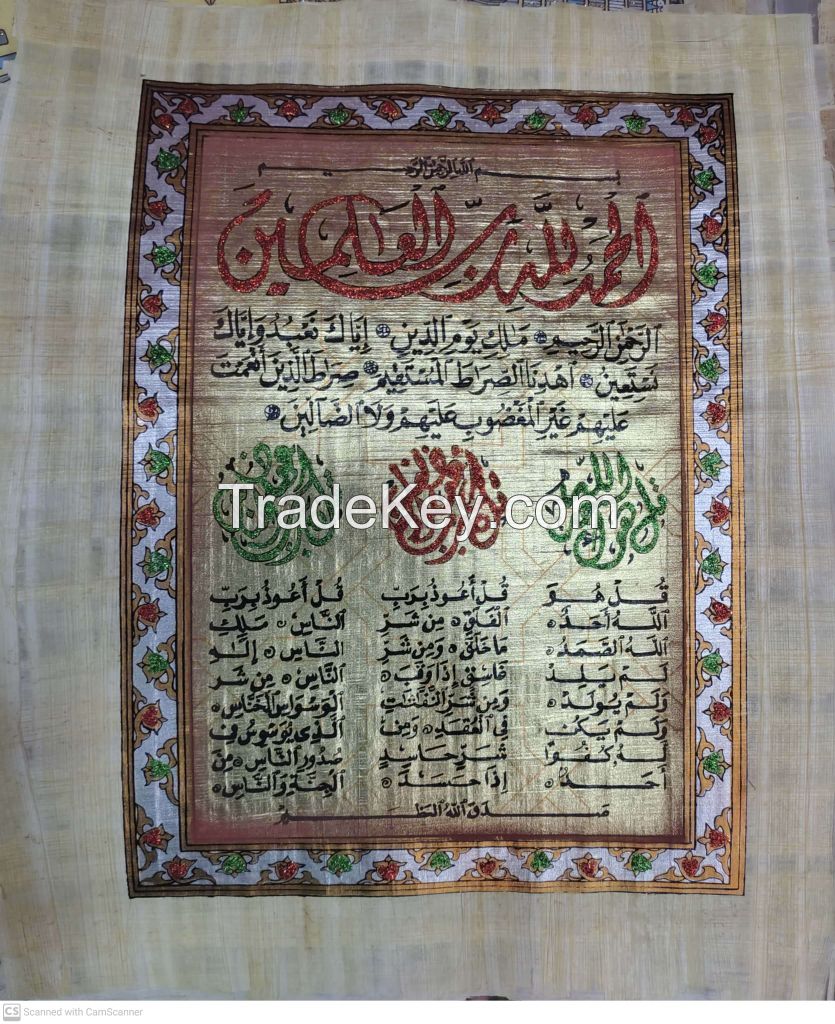 بسم الله الرحمن الرحيم
الحمد لله رب العالمين
الرحمن الرحيم ملك يوم الدين إياك نعبد وإياك
نستعين اهدنا الصراط المستقيم صراط الذين أنعمت
عليهم غير المغضوب عليهم ولا الضالين
قل هو الله
TradeKey.com
قل هو
الله أحد
الله الصمد
لم يلد
ولم يولد
ولم يكن
له كفوا
أحد
قل أعوذ برب
الفلق من شر
ما خلق ومن شر
غاسق إذا وقب
ومن شر النفثت
في العقد ومن
شر حاسد
إذا حسد
قل أعوذ برب
الناس ملك
الناس إله
الناس من شر
الوسواس الخناس
الذي يوسوس في
صدور الناس من
الجنة والناس
صدق الله العظيم
CS Scanned with CamScanner